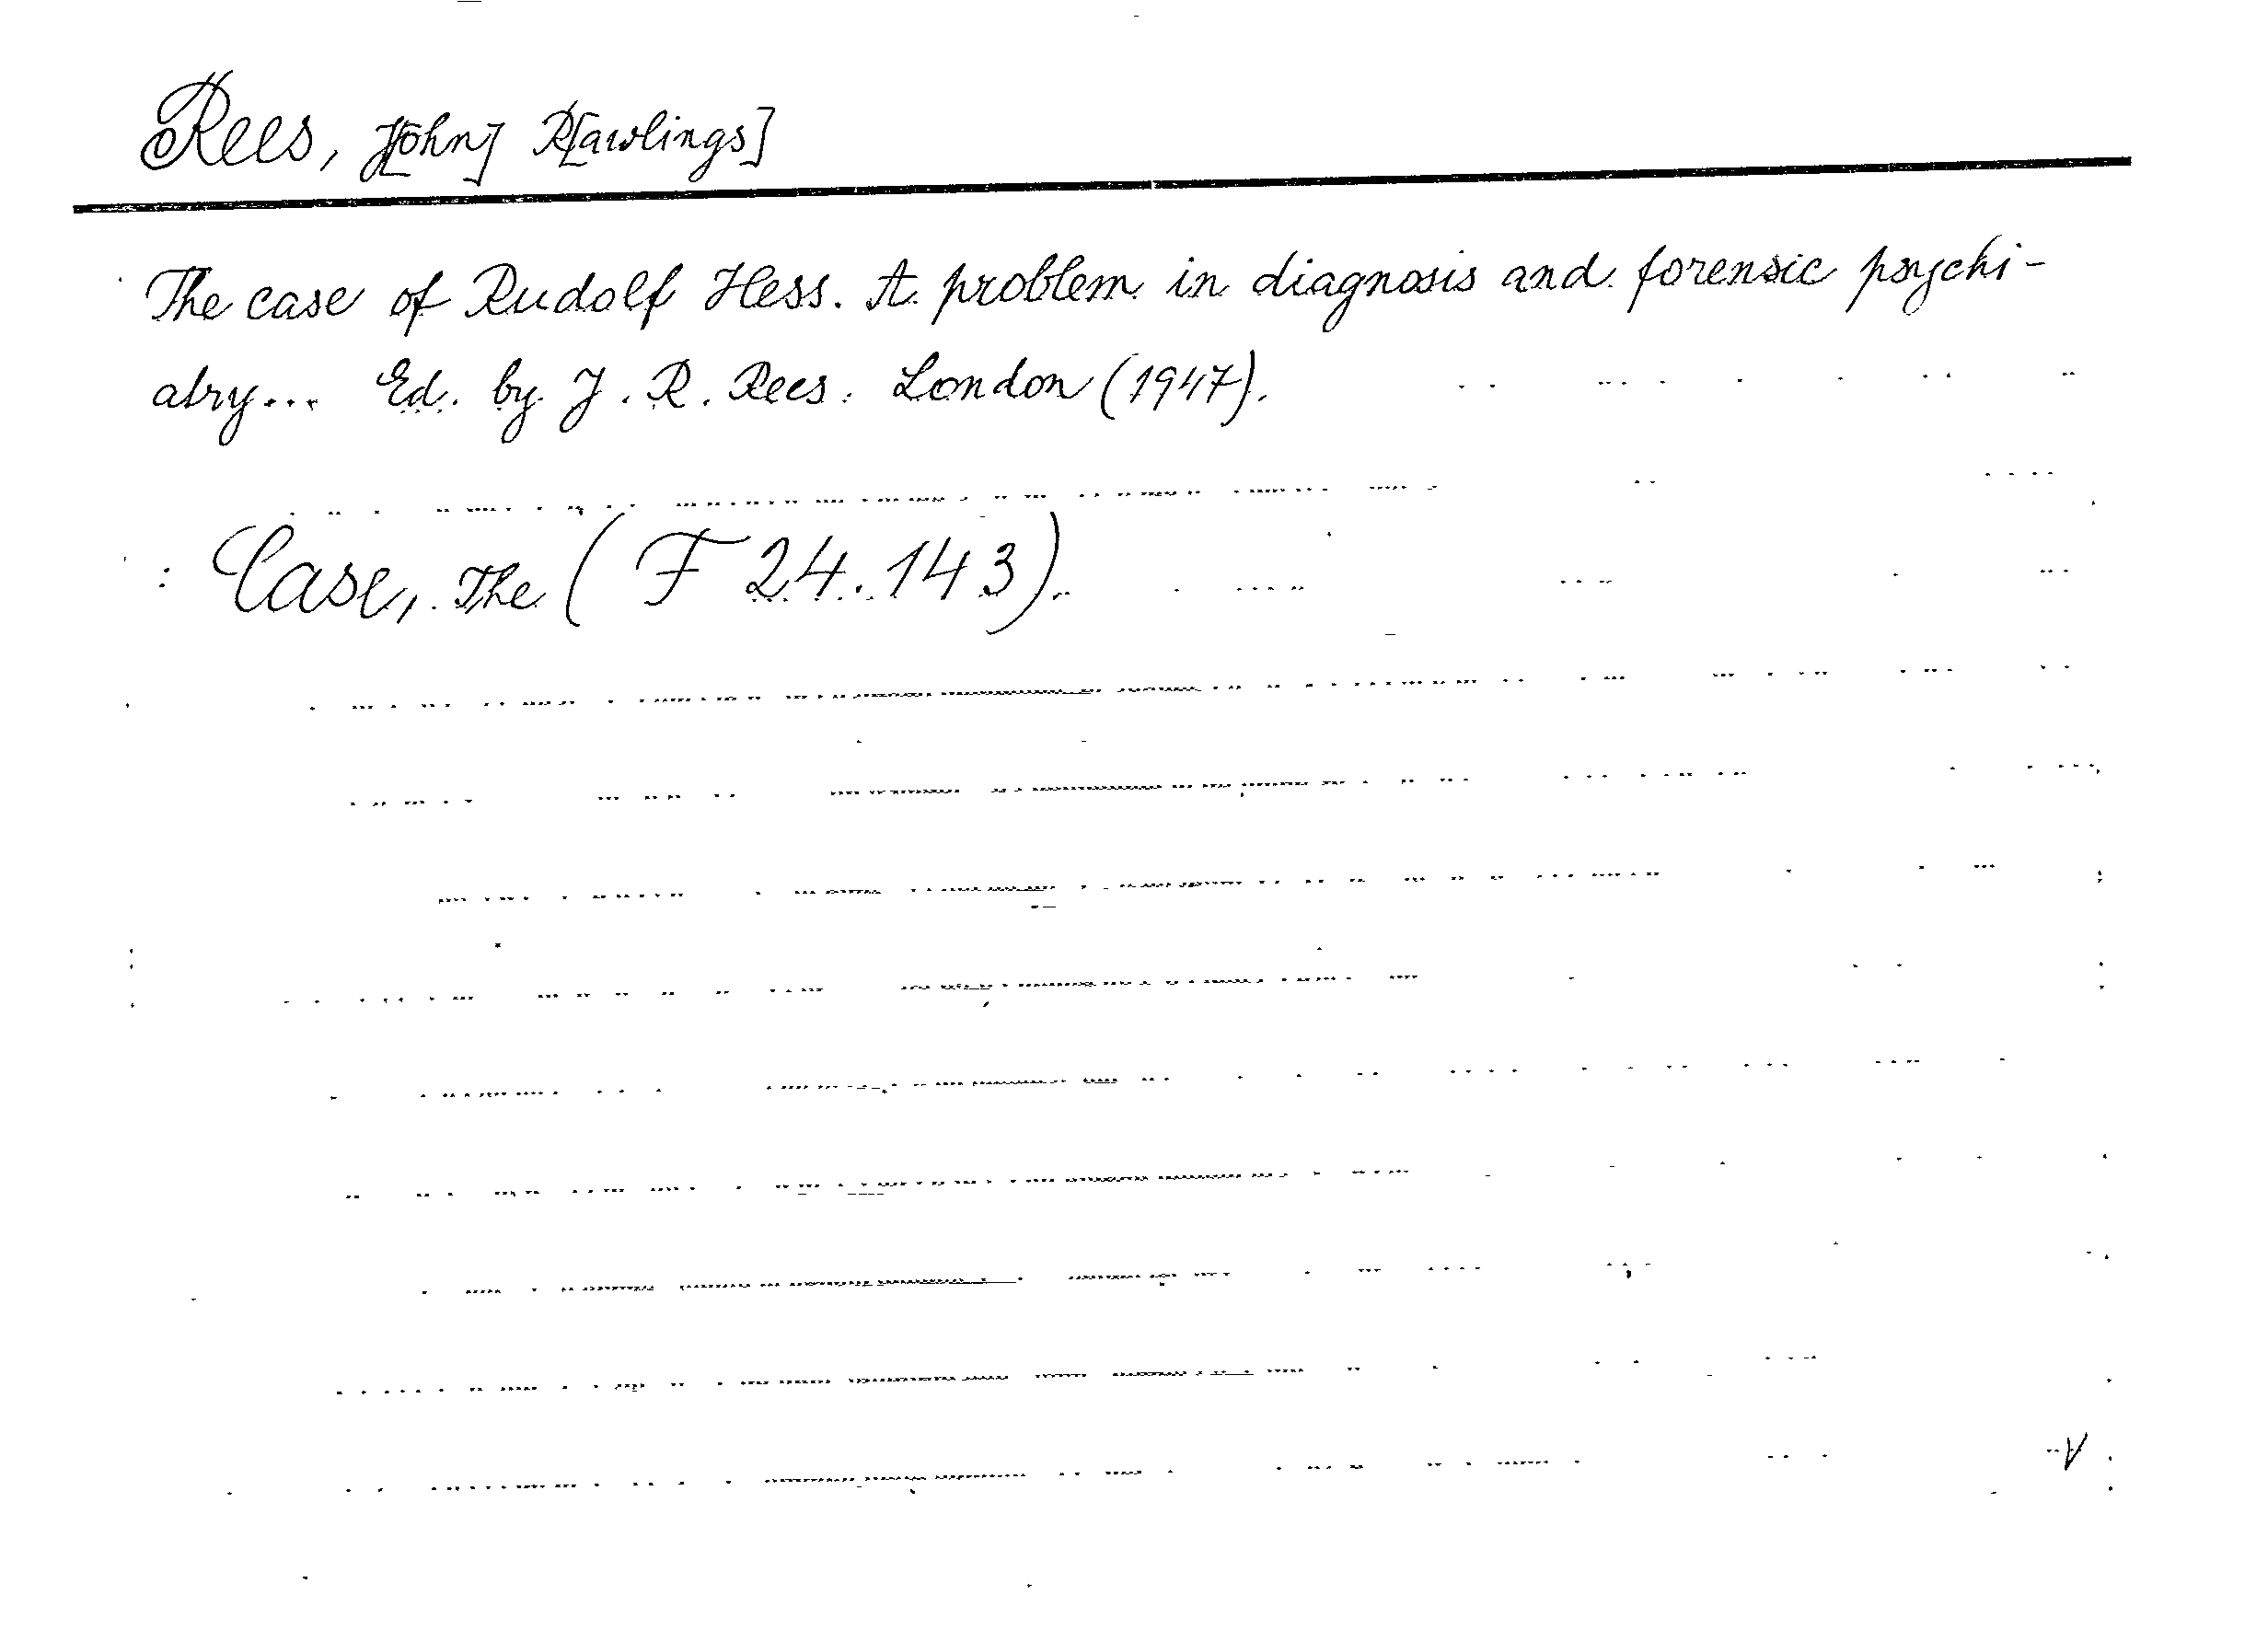 Rees, J[ohn] R[awlings]
The case of Rudolf Hess. A problem in diagnosis and forensic psychi-
atry... Ed. by J. R. Rees. London (1947).
: Case, The (F 24.143).
V